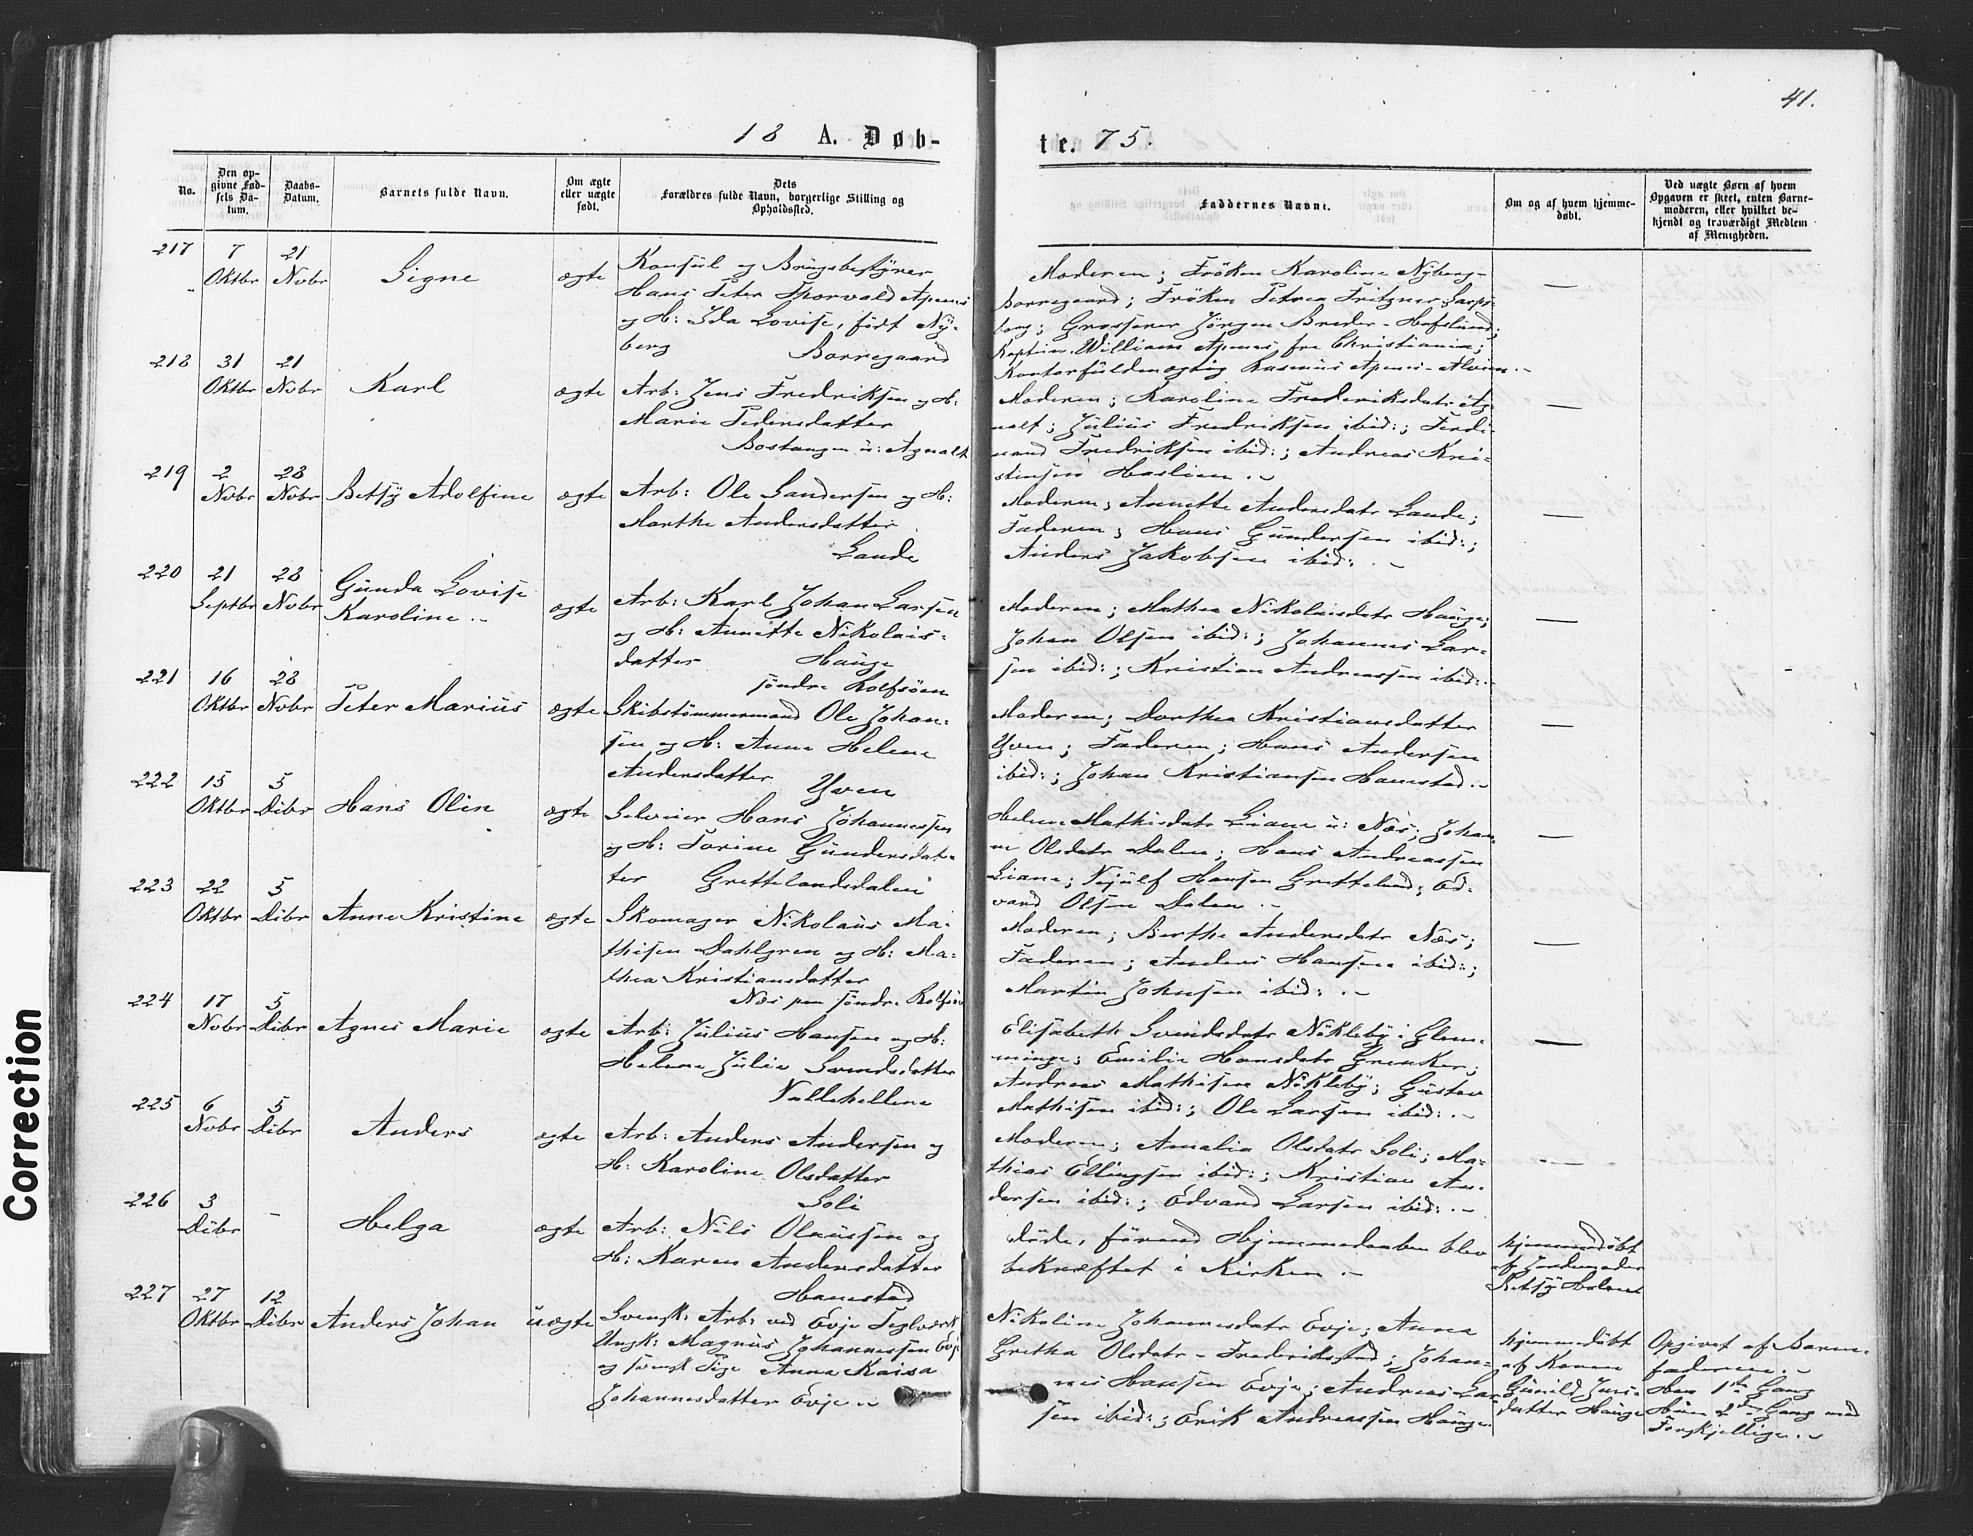 41.
18 A. Døb-
te. 75.
No.
Den op-
givne Fød-
sels Da-
tum.
Daabs-
Datum.
Barnets fulde Navn.
Om ægte
eller uægte
født.
Dets
Forældres fulde Navn, borgerlige Stilling og
Opholdssted.
Faddernes Navne.
Om og af hvem hjemme-
døbt.
Ved uægte Børn af hvem
Opgaven er skeet, enten Barne-
moderen, eller hvilket be-
kjendt og troværdigt Medlem
af Menigheden.
217 7 21
Oktbr Nvbr Signe ægte
Konsul og Brugsbestyrer
Hans Peter Thorvald Apenes
og H: Ida Lovise, født Ny-
berg Borregaard
Moderen; Frøken Karoline Nyberg-
Borregaard; Frøken Petrea Fritzner Sarps-
borg; Grosserer Jørgen Breder - Hafslund;
Kaptein William Apenes fra Christiania;
Kontorfuldmægtig Rasmus Apenes - Alvim.-
—
218 31 21
Oktbr Nvbr Karl ægte
Arb: Jens Fredriksen og H:
Marie Pedersdatter
Bostangen u: Agnalt
Moderen; Karoline Frederiksdatr Ag-
nalt; Julius Fredriksen ibid:; Ferdi-
nand Fredriksen ibid:; Andreas Kri-
stensen Haslien.-
—
219 2 28
Nvbr Nvbr Betsy Adolfine ægte
Arb: Ole Gundersen og H:
Marthe Andersdatter
Lande
Moderen; Annette Andersdatr Lande;
Faderen; Hans Gundersen ibid:;
Anders Jakobsen ibid:.-
—
220 21 28
Septbr Nvbr Gunda Lovise
Karoline.- ægte
Arb: Karl Johan Larsen
og H: Annette Nikolais-
datter Hauge
søndre Rolfsøen
Moderen; Mathea Nikolaisdatr Hauge;
Johan Olsen ibid:; Johannes Lar-
sen ibid:; Kristian Andreassen ibid:.-
—
221 16 28
Oktbr Nvbr Peter Marius ægte
Skibstømmermand Ole Johan-
sen og H: Anne Helene
Andersdatter Yven
Moderen; Dorthea Kristiansdatter
Yven; Faderen; Hans Andersen
ibid:; Johan Kristiansen Hannestad.-
—
222 15 5
Oktbr Dcbr Hans Olin ægte
Selveier Hans Johannessen
og H: Torine Gundersdat-
ter Grettelandsdalen
Helene Mathisdatr Liane u: Næs; Johan-
ne Olsdatr Dalen; Hans Andreassen
Liane; Nejulf Hansen Gretteland; Ed-
vard Olsen Dalen.-
—
223 22 5
Oktbr Dcbr Anne Kristine ægte
Skomager Nikolaus Ma-
thisen Dahlgren og H: Ma-
thea Kristiansdatter
Næs paa søndr. Rolfsø
Moderen; Berthe Andersdatr Næs;
Faderen; Anders Hansen ibid:;
Martin Johnsen ibid:.-
—
224 17 5
Nvbr Dcbr Agnes Marie ægte
Arb: Julius Hansen og H:
Helene Julie Svendsdatter
Vallehellene
Elisabeth Svendsdatr Nøkleby i Glem-
minge; Emilie Hansdatr Grenker;
Andreas Mathisen Nøkleby; Gustav
Mathisen ibid:; Ole Larsen ibid:.-
—
225 6 5
Nvbr Dcbr Anders ægte
Arb: Anders Andersen og
H: Karoline Olsdatter
Soli
Moderen; Amalia Olsdatr Soli; Ma-
thias Ellingsen ibid:; Kristian An-
dersen ibid:; Edvard Larsen ibid:.-
—
226 3 -
Dcbr Helga ægte
Arb: Nils Olaussen og
H: Karen Andersdatter
Hannestad
døde, førend Hjemmedaaben blev
bekræftet i Kirken.-
hjemmedøbt
af Jordemoder
Betsy
227 27 12
Oktbr Dcbr Anders Johan uægte
Svensk: Arb: ved Evje Teglværk
Ungk: Magnus Johannessen Evje
og svensk Pige Anna Kaisa
Johannesdatter Evje.-
Nikoline Johannesdatr Evje; Anna
Grethe Olsdatr - Frederikstad; Johan-
nes Hansen Evje; Andreas Lar-
sen ibid:; Erik Andreassen Hauge.
hjemmedøbt
af Konen
Gunild Jens-
datter Hauge
Opgivet af Barne-
faderen.-
Han 1ste Gang
Hun 2den Gang med
Forskjellige.-
Correction